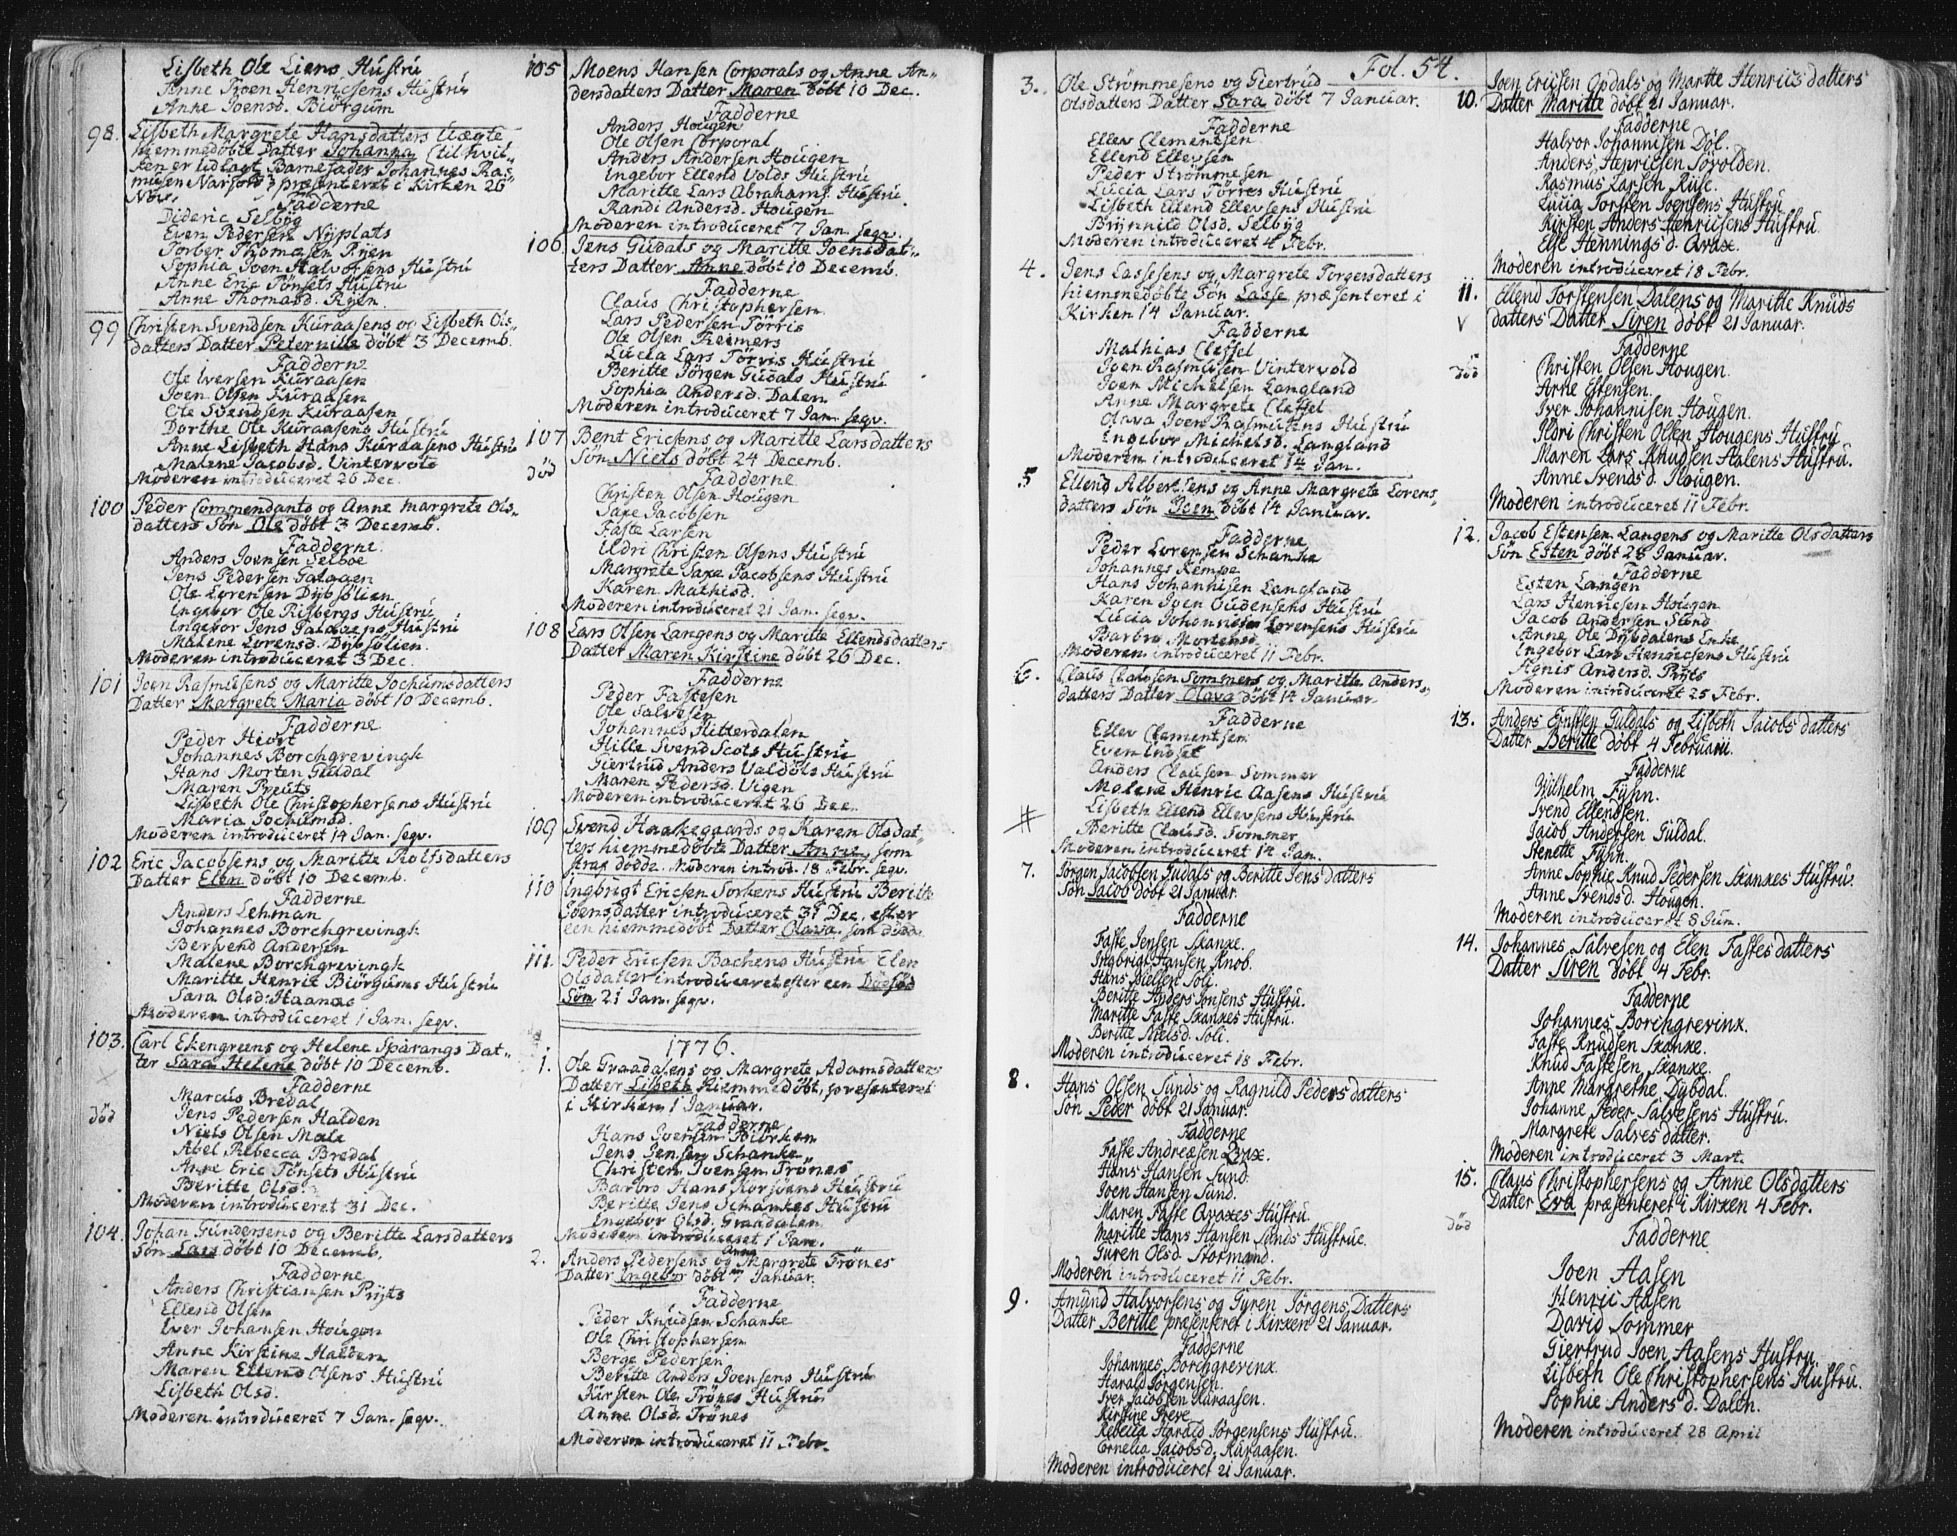 Lisbeth Ole Liens Hustru
Anne Joen Henricsens Hustru
Anne Joensd. Biörgum
98. Lisbeth Margrete Hansdatters Uægte
hiemmedöbte Datter Johanna (til hvil-
ken er udlagt Barnefader Johannes Ras-
musen Narfold) præsenteret i Kirken 26
Nov.
Fadderne
Dideric Selbÿg
Even Pedersen Nÿplats
Torber Thomasen Rÿen
Sophia Joen Halvorsens Hustru
Anne Eric Tönsets Hustru
Anne Thomasd. Rÿen
99 Christen Svendsen Kuraasens og Lisbeth Ols-
datters Datter Peternille döbt 3 Decemb.
Fadderne
Ole Iversen Kuraasen
Joen Olsen Kuraasen
Ole Svendsen Kuraasen
Dorthe Ole Kuraasens Hustru
Anne Lisbeth Hans Kuraasens Hustru
Malene Jacobsd. Vintervold
Moderen introduceret 26 Dec.
100 Peder Commendants og Anne Margrete Ols-
datters Sön Ole döbt 3 Decemb.
Fadderne
Anders Joensen Selboe
Jens Pedersen Galaaen
Ole Lorensen Dÿbsölien
Ingebor Ole Risbergs Hustru
Ingebor Jens Galaaens Hustru
Malene Lorensd. Dÿbsölien
Moderen introduceret 3 Dec.
101 Joen Rasmusens og Maritte Jochumsdatters
Datter Margrete Maria döbt 10 Decemb.
Fadderne
Peder Hiort
Johannes Borchgrevingk
Hans Morten Guldal
Maren Preuts
Lisbeth Ole Christophersens Hustru
Maria Jochumsd.
Moderen introduceret 14 Jan. segv.
102 Eric Jacobsens og Maritte Rolfsdatters
Datter Elen döbt 10 Decemb.
Fadderne
Anders Lehman
Johannes Borchgrevingk
Berwend Andersen
Malene Borchgrevingk
Maritte Henric Biörgums Hustru
Sara Olsd. Haanæs
Moderen introduceret 1 Jan. segv.
103. Carl Ekengreens og Helene Sparangs Dat-
ter Sara Helene döbt 10 Decemb.
Fadderne
död
Marcus Bredal
Jens Pedersen Halden
Niels Olsen Male
Abel Rebecca Bredal
Anne Eric Tönsets Hustru
Beritte Olsd.
Moderen introduceret 31 Dec.
104. Johan Gundersens og Beritte Larsdatters
Sön Lars döbt 10 Decemb.
Fadderne
Anders Christiansen Prÿts
Ellend Olsen
Iver Johansen Hougen
Anne Kirstine Halden
Maren Ellend Olsens Hustru
Lisbeth Olsd.
Moderen introduceret 7 Jan. segv.
105 Moens Hansen Corporals og Anne An-
dersdatters Datter Maren döbt 10 Dec.
Fadderne
Anders Hougen
Ole Olsen Corporal
Anders Andersen Hougen
Ingebor Ellend Volds Hustru
Maritte Lars Abrahams Hustru
Randi Andersd. Hougen
Moderen introduceret 7 Jan. segv.
106. Jens Gudals og Maritte Joensdat-
ters Datter Anne döbt 10 Decemb.
Fadderne
Claus Christophersen
Lars Pedersen Törris
Ole Olsen Reimers
Lucia Lars Törris Hustru
Beritte Jörgen Gudals Hustru
Sophia Andersd. Dalen
Moderen introduceret 7 Jan. segv.
107 Bent Ericsens og Maritte Larsdatters
Sön Niels döbt 24 Decemb.
död
Fadderne
Christen Olsen Hougen
Saxe Jacobsen
Faste Larsen
Uldri Christen Olsens Hustru
Margrete Saxe Jacobsens Hustru
Karen Mathisd.
Moderen introduceret 21 Jan. segv.
108 Lars Olsen Langens og Maritte Ellendsdatters
Datter Maren Kirstine döbt 26 Dec.
Fadderne
Peder Fastesen
Ole Salvesen
Johannes Hitterdalen
Hille Svend Scots Hustru
Giertrud Anders Valdöls Hustru
Maren Pedersd. Vigen
Moderen introduceret 26 Dec.
109 Svend Haakegaards og Karen Olsdat-
ters hiemmedöbte Datter Anne, som
strax dödde. Moderen introd. 18 Febr. segv.
110 Ingbrigt Ericsen Sorkens Hustru Beritte
Joensdatter introduceret 31 Dec. efter
een hiemmedöbt Datter Olava, som döde.
111. Peder Ericsen Bachens Hustru Elen
Olsdatter introduceret efter een Dödfød
Sön 21 Jan. segv.
1776.
1. Ole Graadalens og Margrete Adamsdatters
Datter Lisbeth hiemmedöbt, præsenteret
i Kirken 1 Januar.
Fadderne
Hans Iversen Biörken
Jens Jensen Schanke
Christen Joensen Trönes
Barbro Hans Korsöens Hustru
Beritte Jens Schankes Hustru
Ingebor Olsd. Graadalen
Moderen introduceret 1 Jan.
2. Anders Pedersens og Anne Margrete Trönes
Datter Ingebor döbt 7 Januar.
Fadderne
Peder Knudsen Schanke
Ole Christophersen
Berge Pedersen
Beritte Anders Joensens Hustru
Kirsten Ole Trönes Hustru
Anne Olsd. Trönes
Moderen introduceret 11 Febr.
Fol. 54.
3. Ole Strömmesens og Giertrud
Olsdatters Datter Sara döbt 7 Januar.
Fadderne
Ellev Clementsen
Ellend Ellevsen
Peder Strömmesen
Lucia Lars Törres Hustru
Lisbeth Ellend Ellevsens Hustru
Brÿnnild Olsd. Selbÿg
Moderen introduceret 4 Febr.
4. Jens Lassesens og Margrete Torgersdatters
hiemmedöbte Sön Lasse præsenteret i
Kirken 14 Januar.
Fadderne
Mathias Cleffel
Joen Rasmusen Vintervold
Joen Michelsen Langland
Anne Margrete Cleffel
Olava Joen Rasmusens Hustru
Ingebor Michelsd. Langland
Moderen introduceret 14 Jan.
5 Ellend Albertsens og Anne Margrete Lorens-
datters Sön Joen döbt 14 Januar.
Fadderne
Peder Lorensen Schanke
Johannes Kempe
Hans Johannisen Langland
Karen Joen Gudensens Hustru
Lucia Johannes Lorensens Hustru
Barbro Mortensd.
Moderen introduceret 11 Febr.
6. Claus Clausen Sommers og Maritte Anders-
datters Datter Olava döbt 14 Januar.
Fadderne
Ellev Clementsen
Even Indset
Anders Clausen Sommer
Malene Henric Aasens Hustru
Lisbeth Ellend Ellevsens Hustru
Beritte Clausd. Sommer
Moderen introduceret 14 Jan.
7. Jörgen Jacobsen Gudals og Beritte Jensdatters
Sön Jacob döbt 21 Januar.
Fadderne
Faste Jensen Skanke.
Ingbrigt Hansen Knob.
Hans Nielsen Soli.
Beritte Anders Jonsens Hustru.
Maritte Faste Skankes Hustru.
Beritte Nielsd. Soli.
Moderen introduceret 18 Febr.
8. Hans Olsen Sunds og Ragnild Pedersdatters
Sön Peder döbt 21 Januar.
Fadderne
Faste Andreæsen Qvax.
Hans Hansen Sund.
Joen Hansen Sund.
Maren Faste Qvaxes Hustru.
Maritte Hans Hansen Sunds Hustrue.
Guren Olsd. Stormand.
Moderen introduceret 11 Febr.
9. Amund Halvorsens og Gyren Jörgens Datters
Datter Beritte præsenteret i Kirken 21 Januar.
Fadderne
Johannes Borchgrevink.
Harald Jörgensen.
Iver Jacobsen Kuraasen.
Kirstine Greve
Rebecca Harald Jörgensens Hustru.
Cornelia Jacobsd. Kuraasen.
Moderen introduceret 21 Januar.
10. Joen Ericsen Opdals og Martte Henricsdatters
Datter Maritte döbt 21 Januar.
Fadderne
Halvor Johannisen Döl.
Anders Henricsen Sovolden.
Rasmus Larsen Ruse.
Lucia Torsten Joensens Hustru
Kirsten Anders Henricsens Hustru.
Else Hennings d. Qvaxe.
Moderen introduceret 18 Febr.
11. Ellend Torstensen Dalens og Maritte Knuds
datters Datter Siren döbt 21 Januar.
V
Fadderne
död
Christen Olsen Hougen.
Arne Estensen.
Iver Johannisen Hougen.
Ildri Christen Olsen Hougens Hustru
Maren Lars Knudsen Aalens Hustru.
Anne Svends d. Hougen.
Moderen introduceret 11 Febr.
12. Jacob Estensen Langens og Maritte Olsdatters
Sön Esten döbt 28 Januar.
Fadderne
Esten Langen
Lars Henricsen Hougen
Jacob Andersen Stend
Anne Ole Dÿbdalens Enke
Ingebor Lars Henricsens Hustru
Agnis Andersd. Prÿts
Moderen introduceret 25 Febr.
13. Anders Erichsen Guldals og Lisbeth Jacobsdatters
Datter Beritte döbt 4 Februarii.
Fadderne
Wilhelm Fÿhn.
Svend Ellendsen.
Jacob Andersen Guldal.
Stenette Fÿhn.
Anne Sophie Knud Pedersen Skankes Hustru.
Anne Svendsd. Hougen.
Moderen introduceret 8 Jun.
14. Johannes Salvesen og Elen Fastesdatters
Datter Siren döbt 4 Febr.
Fadderne
Johannes Borchgrevink.
Faste Knudsen Skanke.
Knud Fastesen Skanke.
Anne Margrethe Dybdal.
Johanne Peder Salvesens Hustru.
Margrete Salvesdatter.
Moderen introduceret 3 Mart.
15. Claus Christophersens og Anne Olsdatters
Datter Eva præsenteret i Kirken 4 Febr.
död
Fadderne
Joen Aasen
Henric Aasen
David Sommer
Giertrud Joen Aasens Hustru
Lisbeth Ole Christophersens Hustru.
Sophie Anders d. Dalen.
Moderen introduceret 28 April